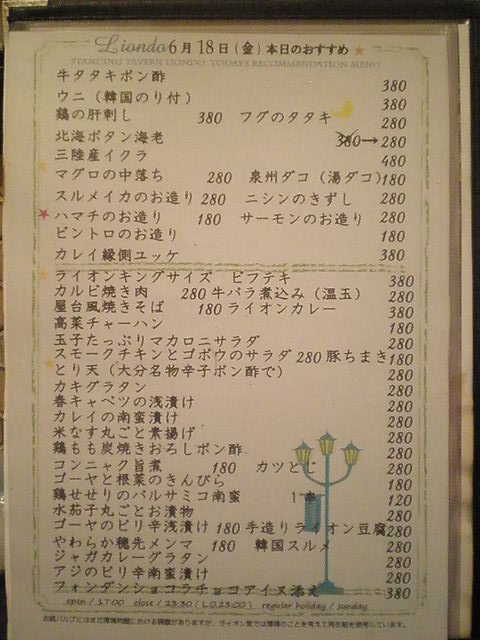 Liondo 6月18日(金)本日のおすすめ ★
STANDING TAVERN LIONDO TODAY'S RECOMMENDATION MENU
牛タタキポン酢 380
ウニ(韓国のり付) 380
鶏の肝刺し 380 フグのタタキ 280
北海ボタン海老 380→280
三陸産イクラ 480
マグロの中落ち 280 泉州ダコ(湯ダコ)180
スルメイカのお造り 280 ニシンのきずし 280
★ハマチのお造り 180 サーモンのお造り 280
ビントロのお造り 180
カレイ縁側ユッケ 380
ライオンキングサイズ ビフテキ 380
カルビ焼き肉 280 牛バラ煮込み(温玉) 280
屋台風焼きそば 180 ライオンカレー 380
高菜チャーハン 180
玉子たっぷりマカロニサラダ 280
スモークチキンとゴボウのサラダ 280 豚ちまき180
とり天(大分名物辛子ポン酢で) 280
カキグラタン 280
春キャベツの浅漬け 280
カレイの南蛮漬け 280
米なす丸ごと素揚げ 280
鶏もも炭焼きおろしポン酢 280
コンニャク旨煮 180 カツとじ 280
ゴーヤと根菜のきんぴら 180
鶏せせりのバルサミコ南蛮 120
水茄子丸ごとお漬物 280
ゴーヤのピリ辛浅漬け 180 手造りライオン豆腐280
やわらか穂先メンマ 180 韓国スルメ 280
ジャガカレーグラタン 280
アジのピリ辛南蛮漬け 280
フォンダンショコラチョコアイス添え 380
open / 17:00 close / 23:30 (L.O.23:00) regular holiday / sunday